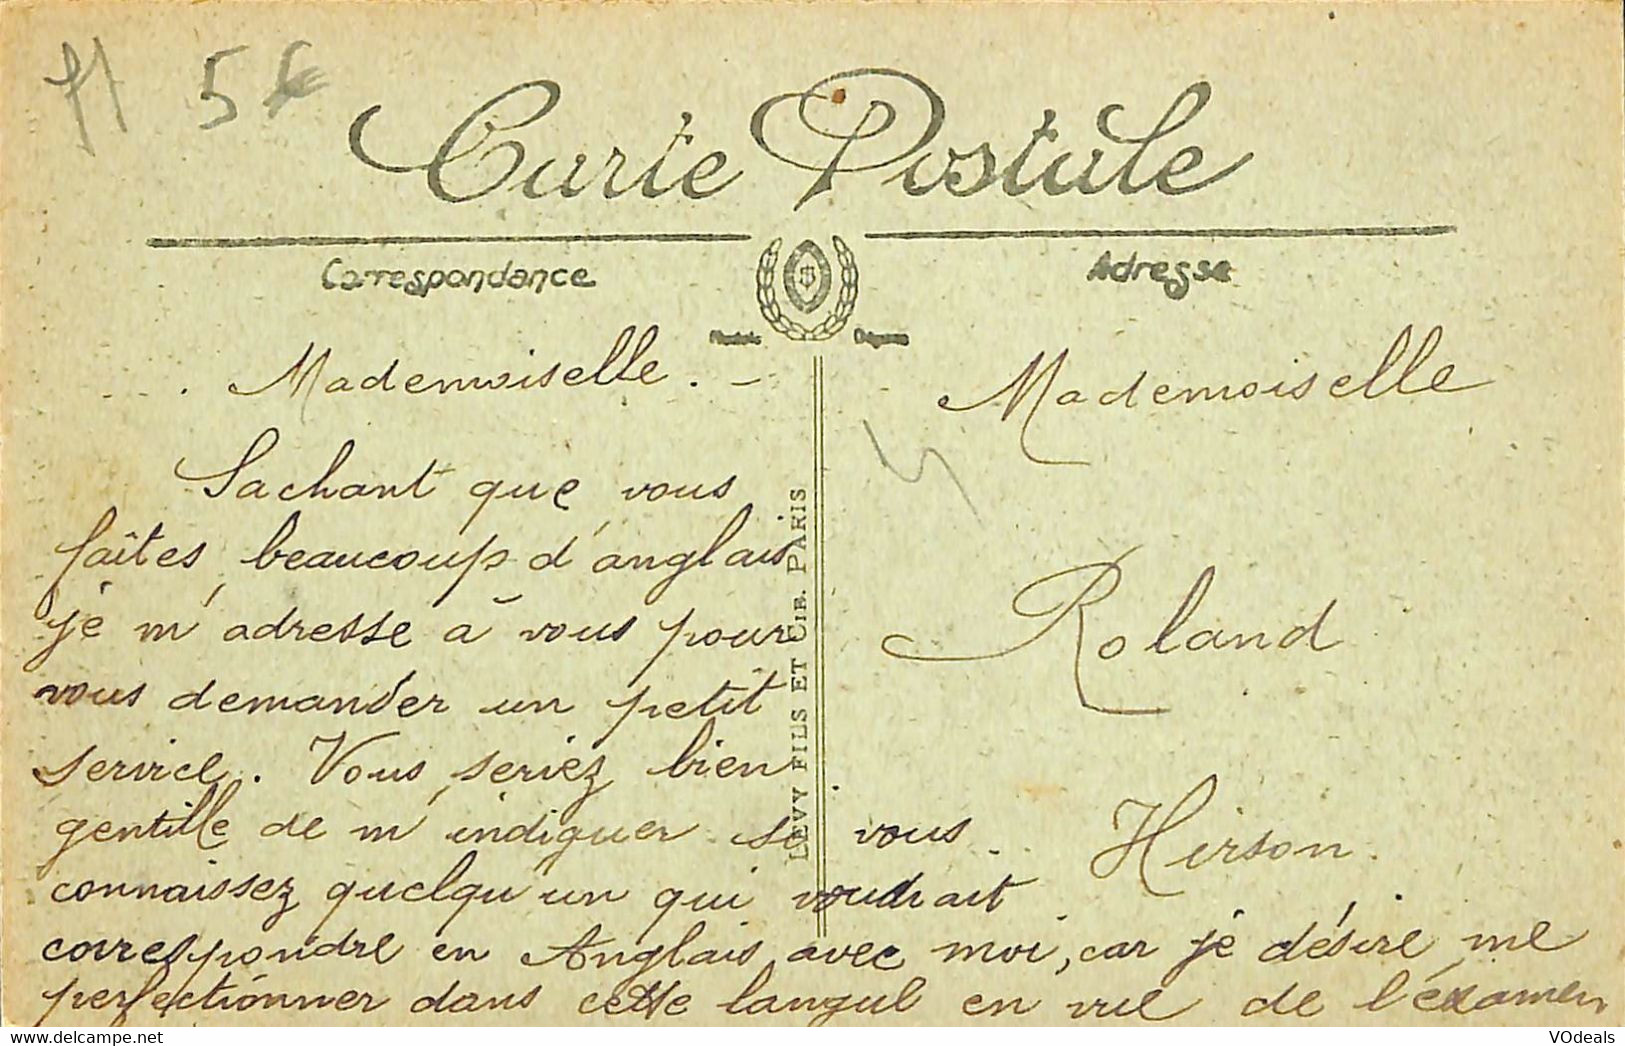 5€
Carte Postale
Correspondance
Adresse
Mademoiselle. -
Sachant que vous
faîtes beaucoup d'anglais
je m'adresse à vous pour
vous demander un petit
service. Vous seriez bien
gentille de m'indiquer si vous
connaissez quelqu'un qui voudrait
correspondre en Anglais avec moi, car je désire me
perfectionner dans cette langue en vue de l'éxamen
LEVY FILS ET CIE. PARIS
Mademoiselle
Roland
Hirson.
VOdeals